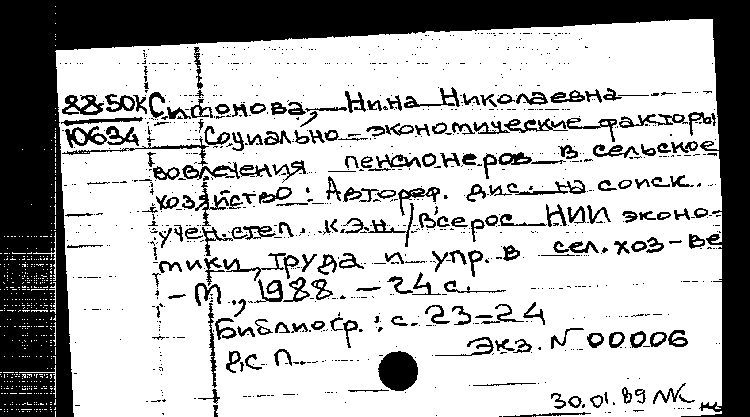 88-50к Ситонова, Нина Николаевна
10634 Социально-экономические факторы
вовлечения пенсионеров в сельское
хозяйство: Автореф. дис. на соиск.
учен. степ. к.э.н. / Всерос НИИ эконо-
мики, труда и упр. в сел. хоз-ве
- М., 1988. - 24 с.
Библиогр.: с. 23-24
Экз. N 00006
30.01.89